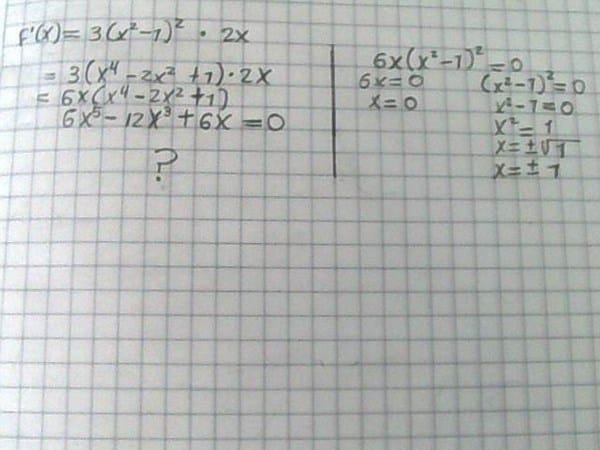 f'(x) = 3(x²-1)² · 2x
= 3(x⁴ - 2x² + 1) · 2x
= 6x(x⁴ - 2x² + 1)
6x⁵ - 12x³ + 6x = 0
?
6x(x²-1)² = 0
6x = 0
x = 0
(x²-1)² = 0
x²-1 = 0
x² = 1
x = ±√1
x = ± 1